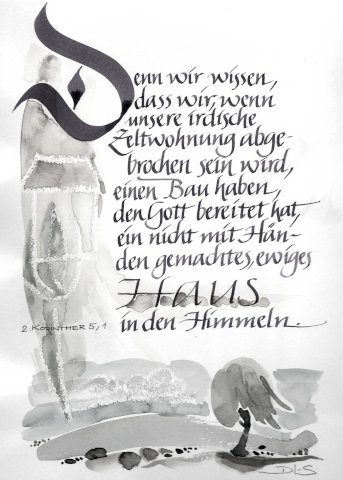 Denn wir wissen,
dass wir, wenn
unsere irdische
Zeltwohnung abge-
brochen sein wird,
einen Bau haben,
den Gott bereitet hat,
ein nicht mit Hän-
den gemachtes, ewiges
HAUS
in den Himmeln.
2. KORINTHER 5,1
DLS